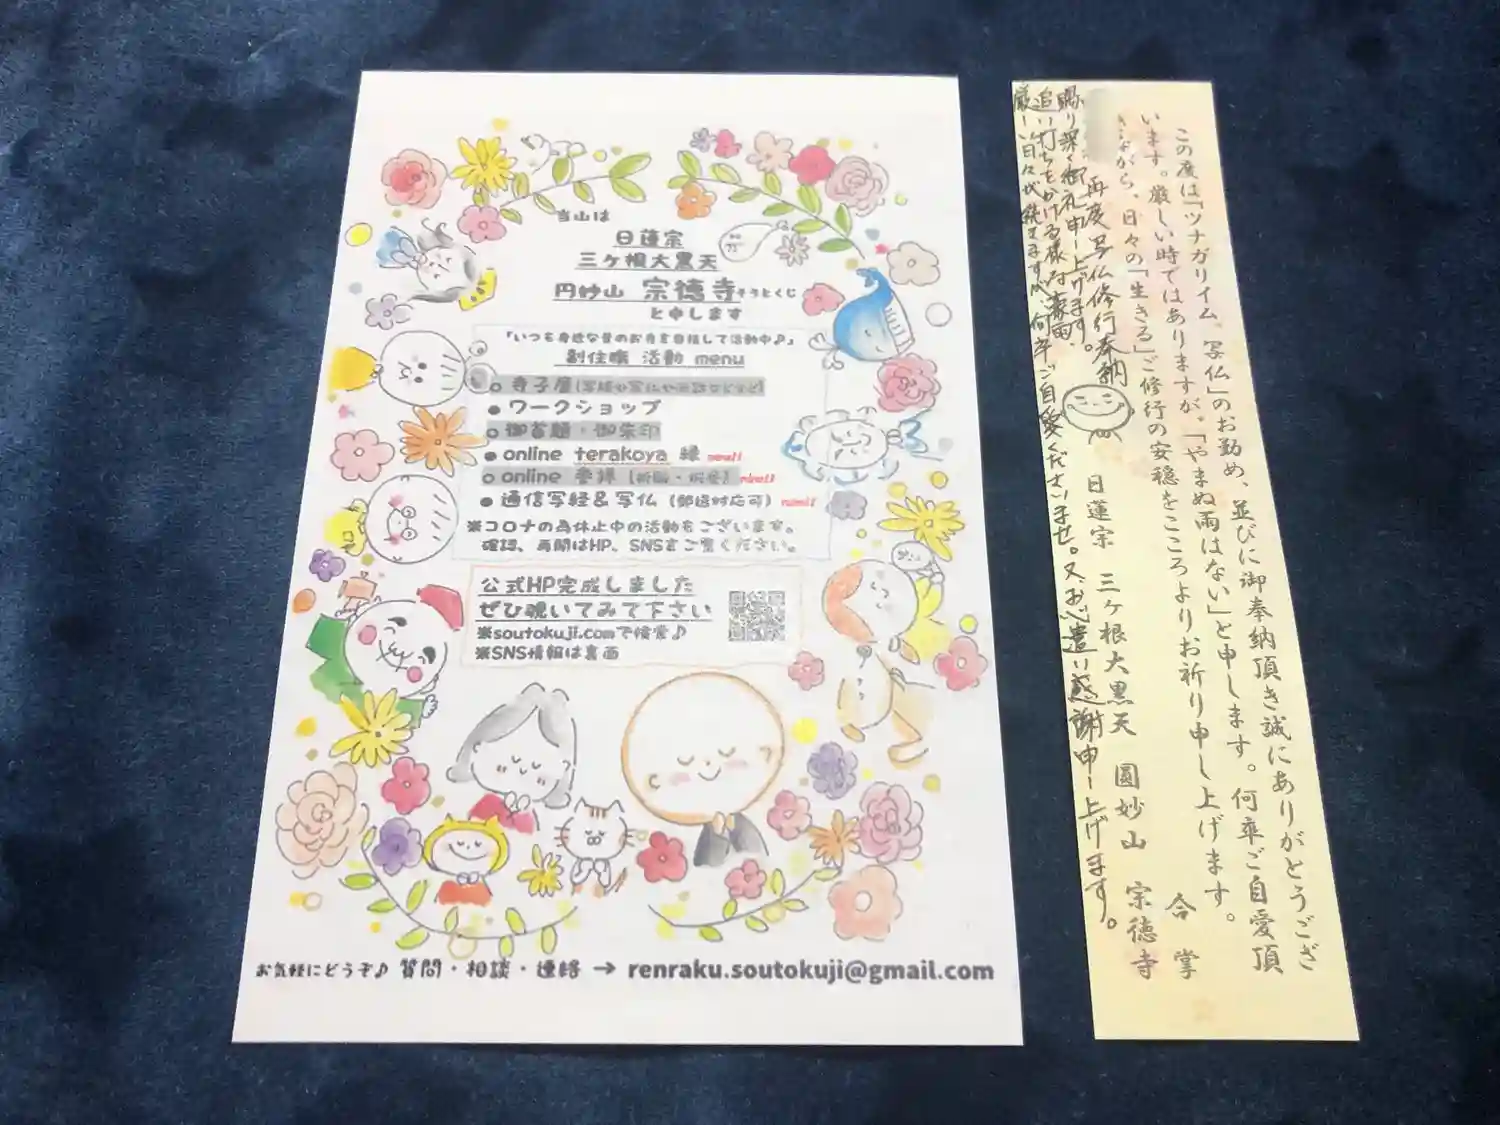 当山は
日蓮宗
三ヶ根大黒天
円妙山 宗徳寺そうとくじ
と申します
「いつも身近な皆のお寺を目指して活動中♪」
副住職 活動 menu
○ 寺子屋
● ワークショップ
○ 御首題・御朱印
● online terakoya 縁 new!!
○ online 参拝
● 通信写経&写仏（郵送対応可）new!!
※コロナの為休止中の活動もございます。
確認、再開はHP、SNSをご覧ください。
公式HP完成しました
ぜひ覗いてみて下さい
※soutokuji.comで検索♪
※SNS情報は裏面
お気軽にどうぞ♪ 質問・相談・連絡 → renraku.soutokuji@gmail.com
この度は「ツナガリイム、写仏」のお勤め、並びに御奉納頂き誠にありがとうござ
います。厳しい時ではありますが、「やまぬ雨はない」と申します。何卒ご自愛頂
きながら、日々の「生きる」ご修行の安穏をこころよりお祈り申し上げます。
合掌
日蓮宗 三ヶ根大黒天 圓妙山 宗徳寺
再度写仏修行奉納
賜り深く御礼申し上げます。
追い打ちをかける様な豪雨、
厳しい日々が続きますが、何卒ご自愛くださいませ。又、お心遣い感謝申し上げます。